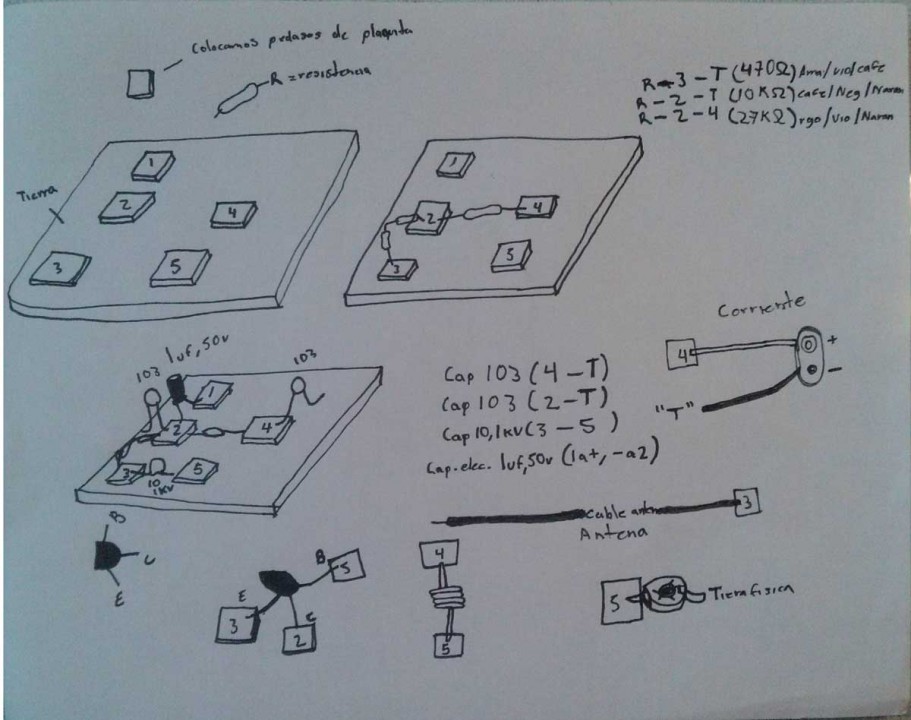 Colocamos pedasos de plaquita
R = resistencia
R - 3 - T (470Ω) Ama/vio/cafe
R - 2 - T (10KΩ) cafe/Neg/Naran
R - 2 - 4 (27KΩ) rgo/vio/Naran
Tierra
1
2
4
3
5
1
2
4
3
5
Corriente
4
+
-
"T"
103
1uf, 50v
103
1
2
4
3
5
10
1KV
Cap 103 (4 - T)
Cap 103 (2 - T)
Cap 10, 1KV (3 - 5)
Cap. elec. 1uf, 50v (1a+, -a2)
Cable antena
Antena
3
B
C
E
B
5
E
3
C
2
4
5
5
Tierra fisica